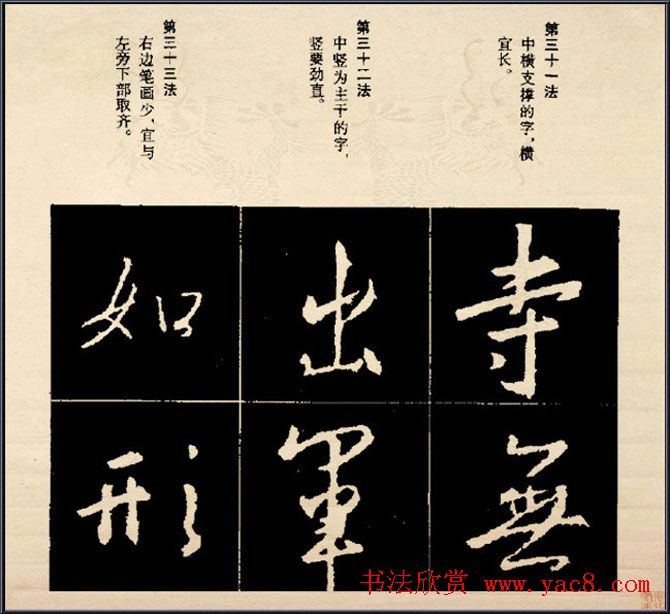 第三十一法
中横支撑的字，横
宜长。
第三十二法
中竖为主干的字，
竖要劲直。
第三十三法
右边笔画少，宜与
左旁下部取齐。
寺
無
出
軍
如
形
书法欣赏 www.yac8.com